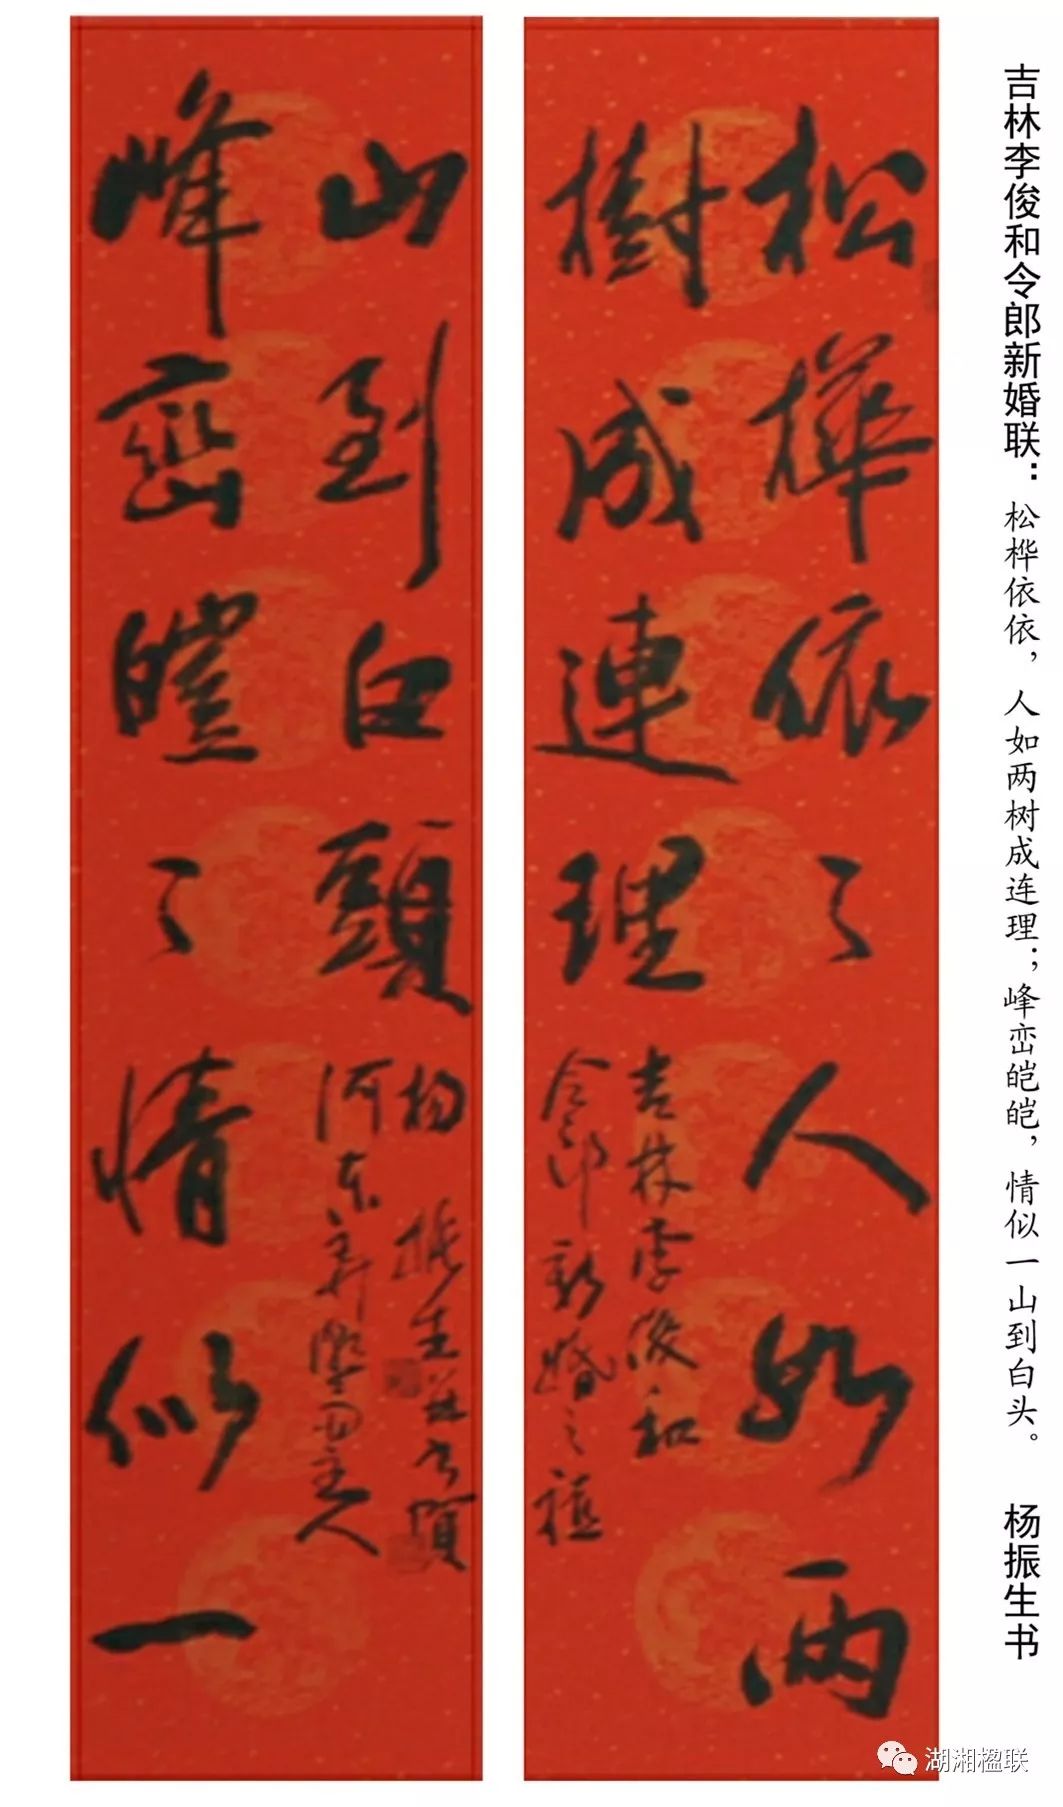 吉林李俊和令郎新婚联：松桦依依，人如两树成连理；峰峦皑皑，情似一山到白头。 杨振生书
松樺依々人如兩
樹成連理
吉林李俊和
令郎新婚之禧
峰巒皚々情似一
山到白頭
楊振生並書賀
河東主人
湖湘楹联